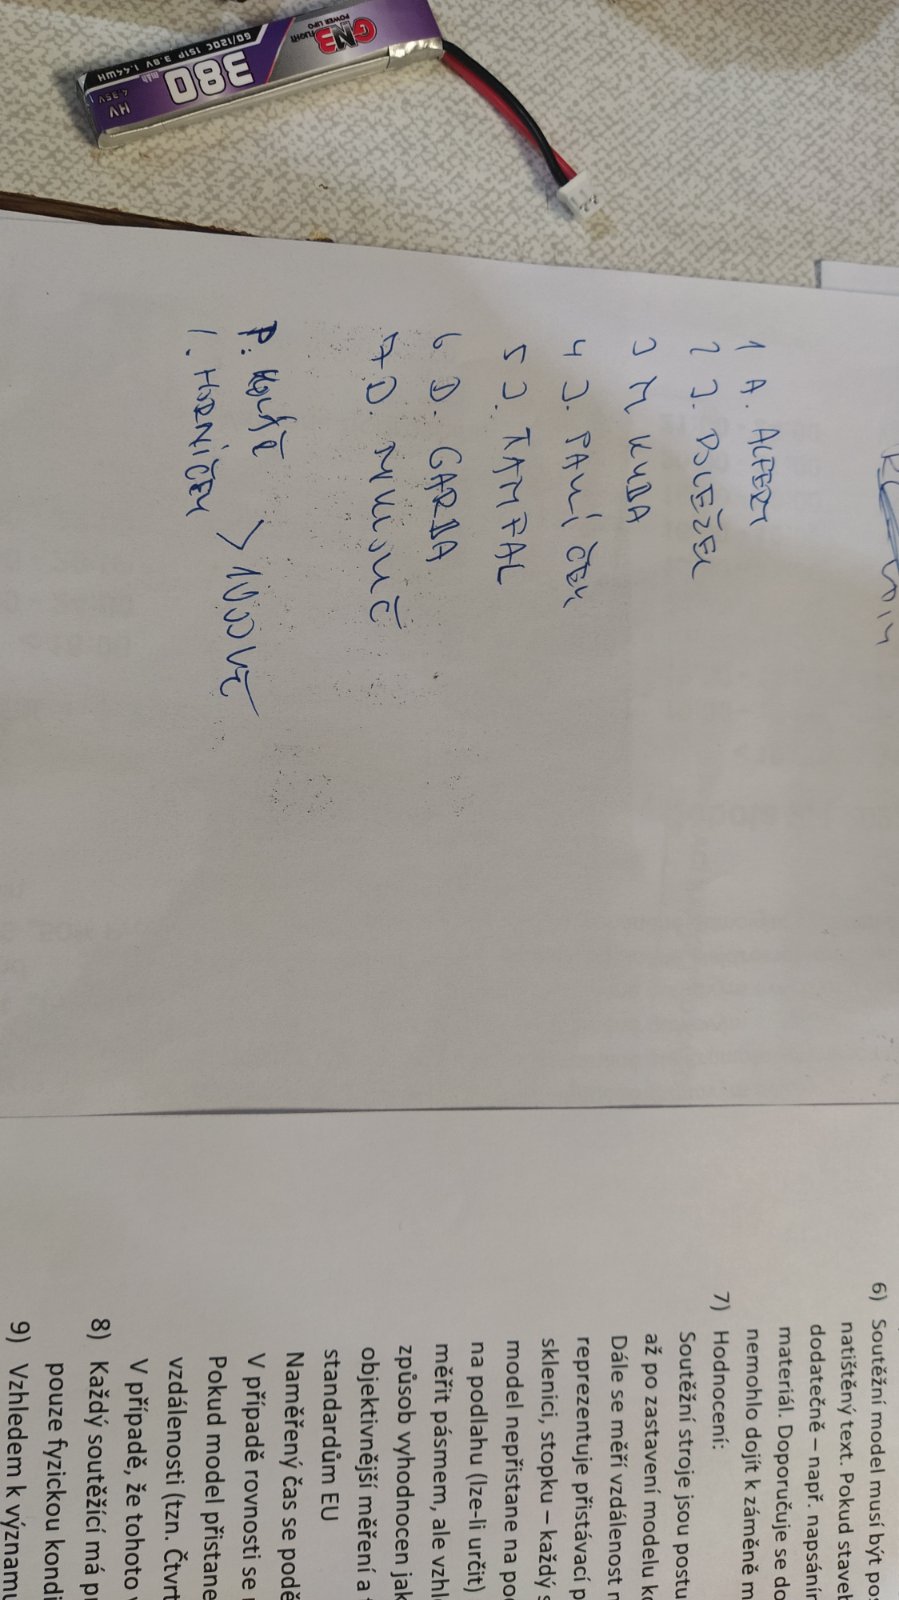 GNB
FLIGHT
POWER LIPO
380 mAh
HV
4.35V
60/120C 1S1P 3.8V 1.44WH
1 A. ALFERY
2 J. DOLEŽEL
3 M KUBA
4 J. PANÍČEK
5 J.
6 D. GARBA
7 D.
P:
1. HORNÍČEK
> 1000 Kč
6) Soutěžní model musí být pos
natištěný text. Pokud staveb
dodatečně – např. napsáním
materiál. Doporučuje se do
nemohlo dojít k záměně m
7) Hodnocení:
Soutěžní stroje jsou postu
až po zastavení modelu ko
Dále se měří vzdálenost m
reprezentuje přistávací p
sklenici, stopku – každý s
model nepřistane na po
na podlahu (lze-li určit)
měřit pásmem, ale vzhl
způsob vyhodnocen jak
objektivnější měření a
standardům EU
Naměřený čas se podě
V případě rovnosti se
Pokud model přistane
vzdálenosti (tzn. Čtvrt
V případě, že tohoto
8) Každý soutěžící má p
pouze fyzickou kondi
9) Vzhledem k významu